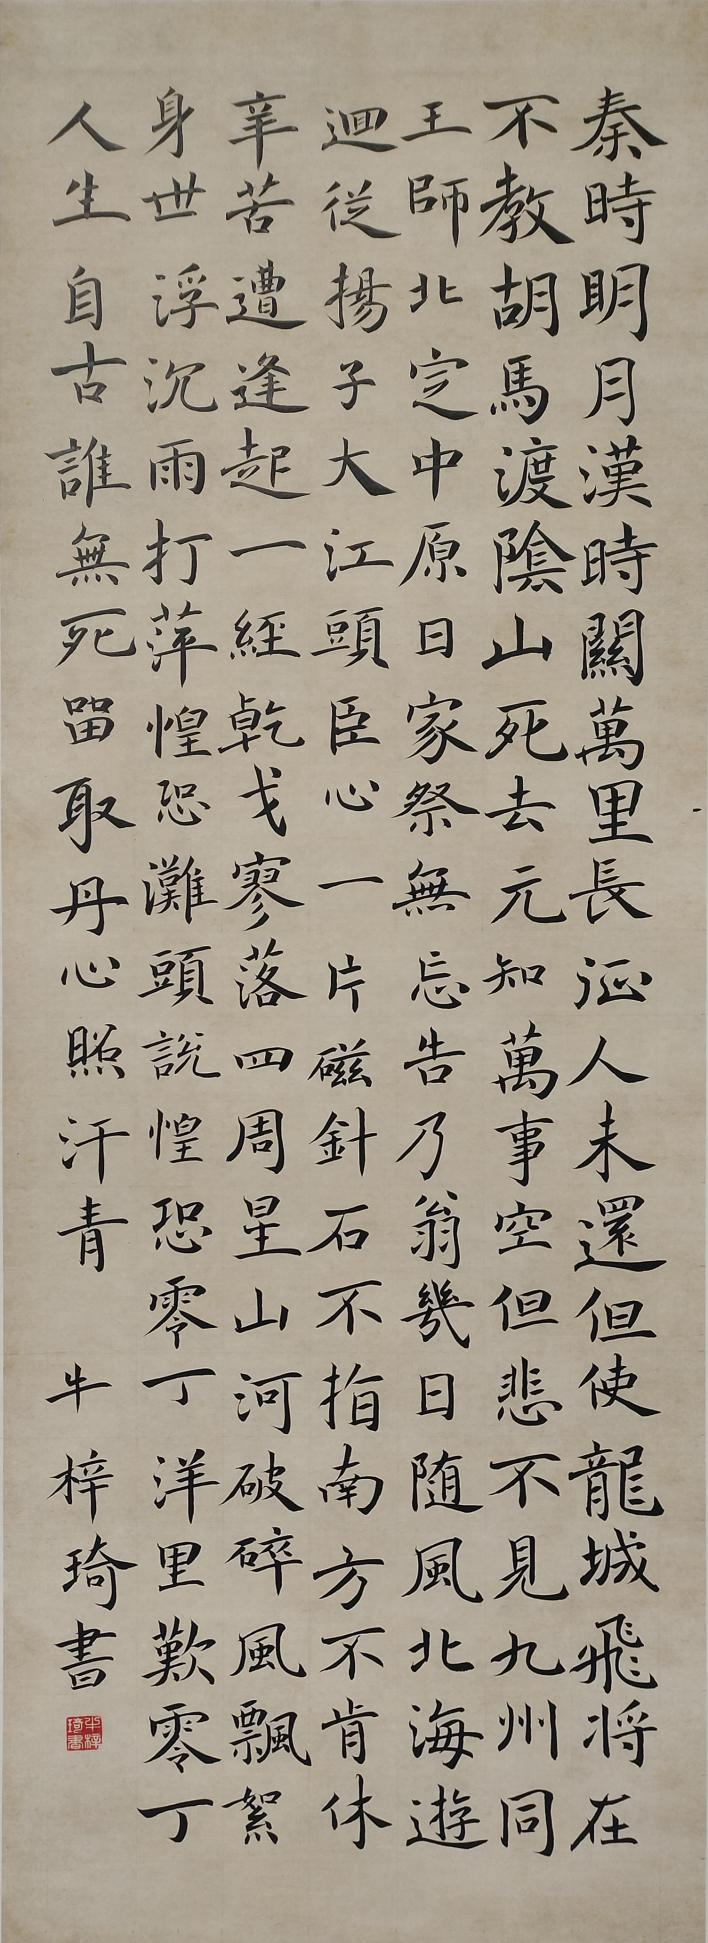 秦時明月漢時關萬里長征人未還但使龍城飛将在
不教胡馬渡陰山死去元知萬事空但悲不見九州同
王師北定中原日家祭無忘告乃翁幾日随風北海遊
迴從揚子大江頭臣心一片磁針石不指南方不肯休
辛苦遭逢起一經乾戈寥落四周星山河破碎風飄絮
身世浮沉雨打萍惶恐灘頭說惶恐零丁洋里歎零丁
人生自古誰無死留取丹心照汗青 牛梓琦書
牛梓琦書